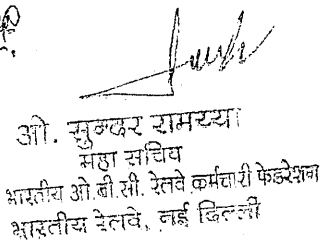 ओ. सुन्दर रामय्या
महा सचिव
भारतीय ओ.बी.सी. रेलवे कर्मचारी फेडरेशन
भारतीय रेलवे, नई दिल्ली